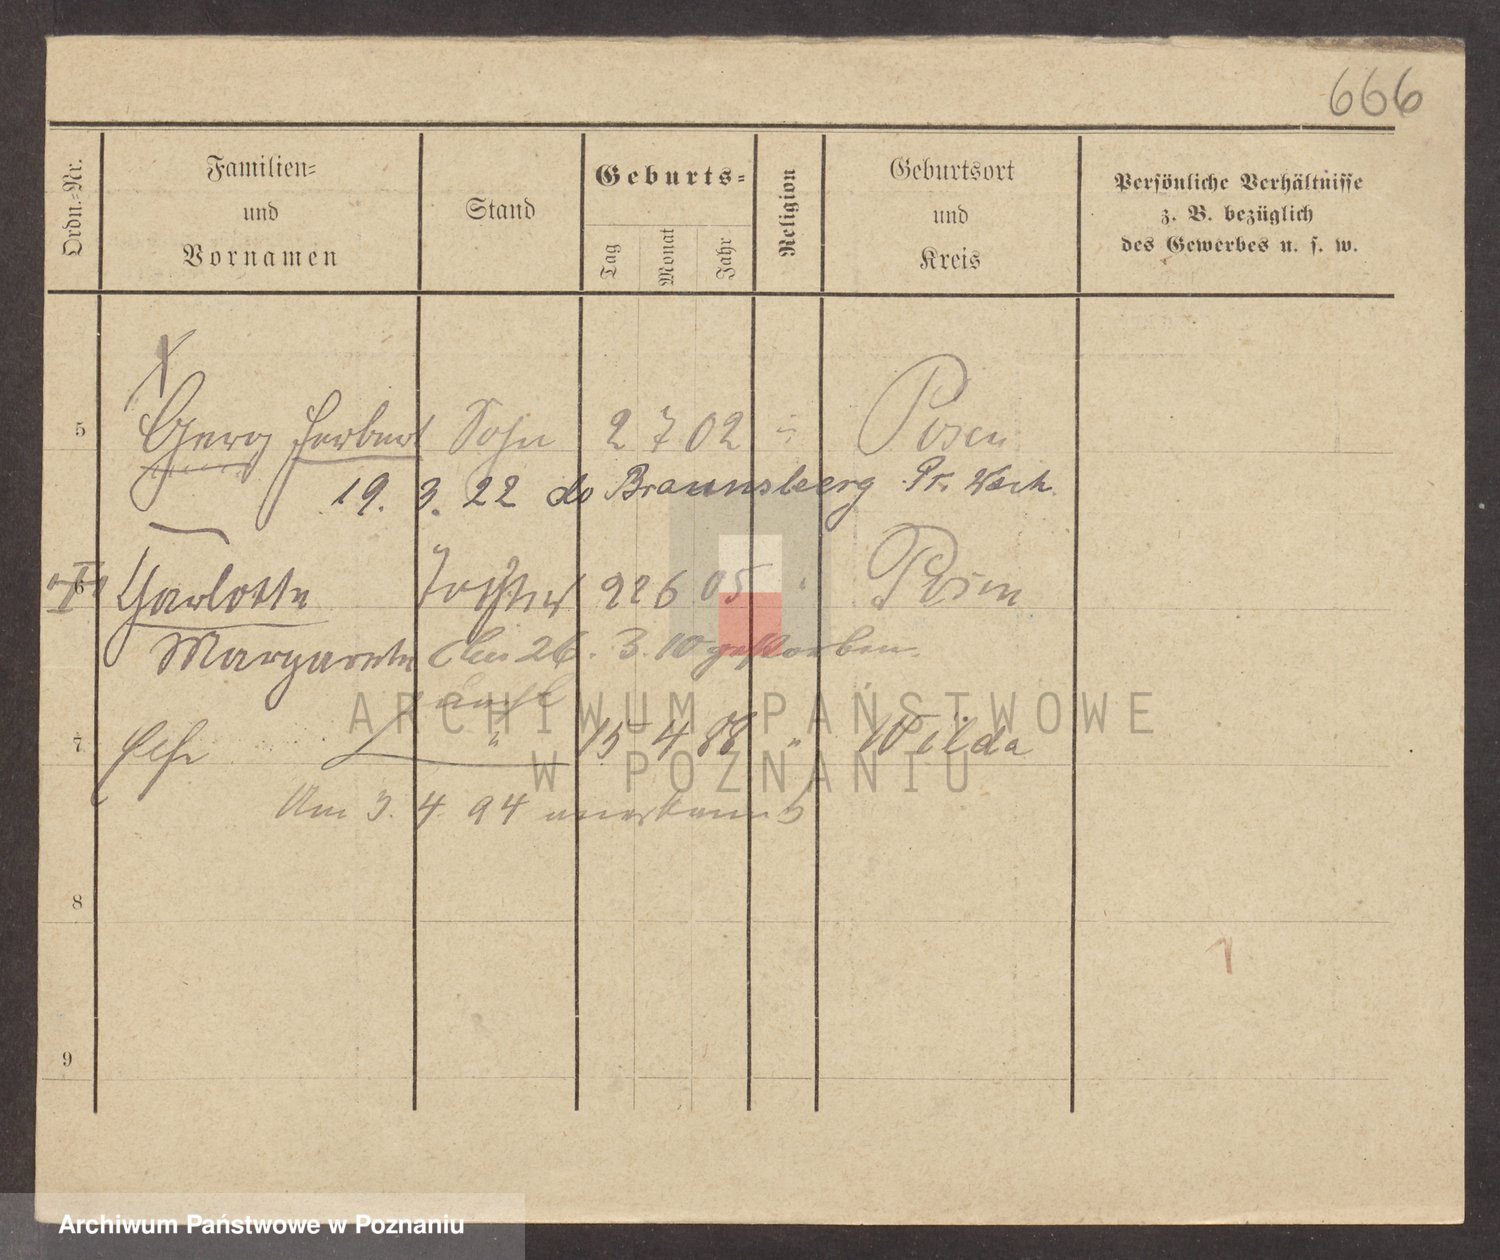 666
Ordn.-Nr.
Familien-
und
Vornamen
Stand
Geburts-
Tag
Monat
Jahr
Religion
Geburtsort
und
Kreis
Persönliche Verhältnisse
z. B. bezüglich
des Gewerbes u. s. w.
5 Georg Herbert Sohn 2 7 02 " Posen
19. 3. 22 do Braunsberg Pr.
6 Charlotte Tochter 22 6 05 " Posen
Margarete 26. 3. 10 gestorben.
7 " 15 4 88 " Wilda
Am 3. 4. 94
8
9
1
ARCHIWUM PAŃSTWOWE
W POZNANIU
Archiwum Państwowe w Poznaniu